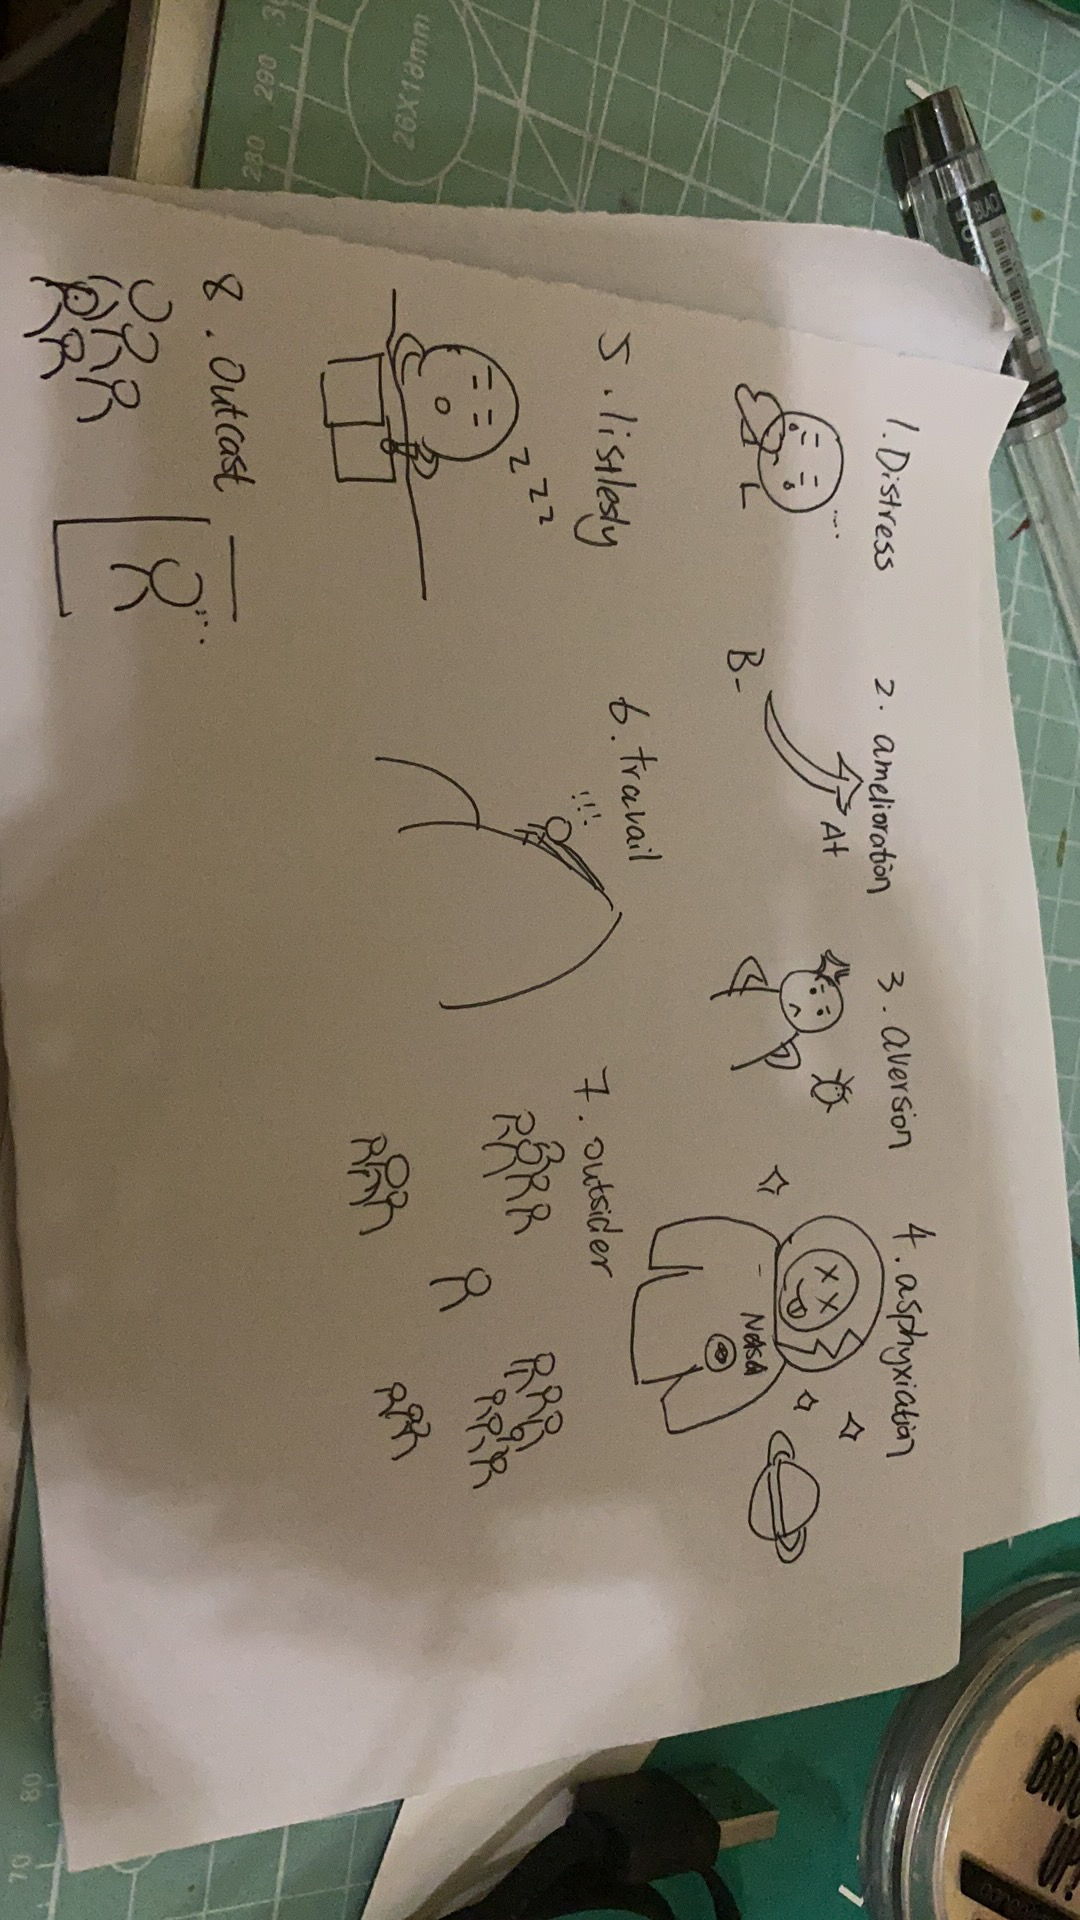 1. Distress
2. amelioration
3. aversion
4. asphyxiation
B-
A+
NASA
5. listlesly
z z z
6. travail
!!!
7. outsider
8. Outcast
26X18mm
290
280
80
70